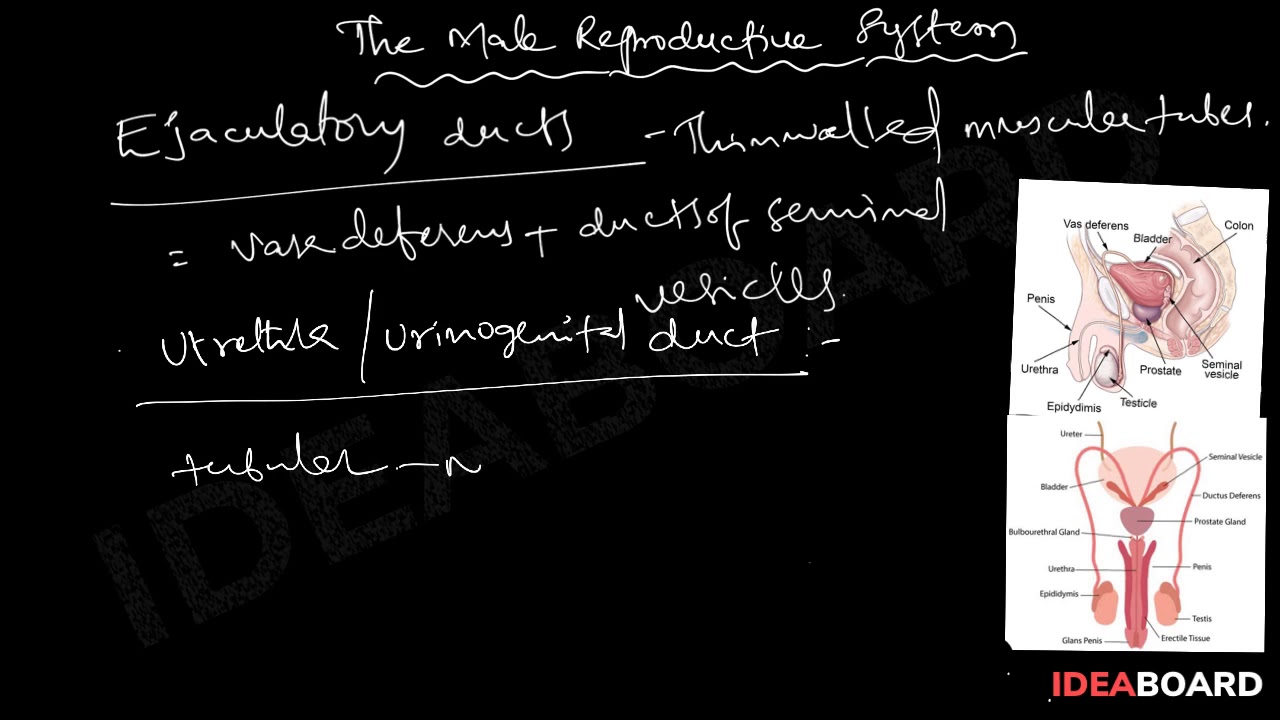 The Male Reproductive System
Ejaculatory ducts - Thin walled muscular tubes.
= vasa deferens + ducts of seminal
vesicles.
Urethra / Urinogenital duct :-
tubular - n
Vas deferens
Bladder
Colon
Penis
Urethra
Prostate
Seminal
vesicle
Epidydimis
Testicle
Ureter
Seminal Vesicle
Bladder
Ductus Deferens
Prostate Gland
Bulbourethral Gland
Urethra
Penis
Epididymis
Testis
Glans Penis
Erectile Tissue
IDEABOARD
IDEABOARD